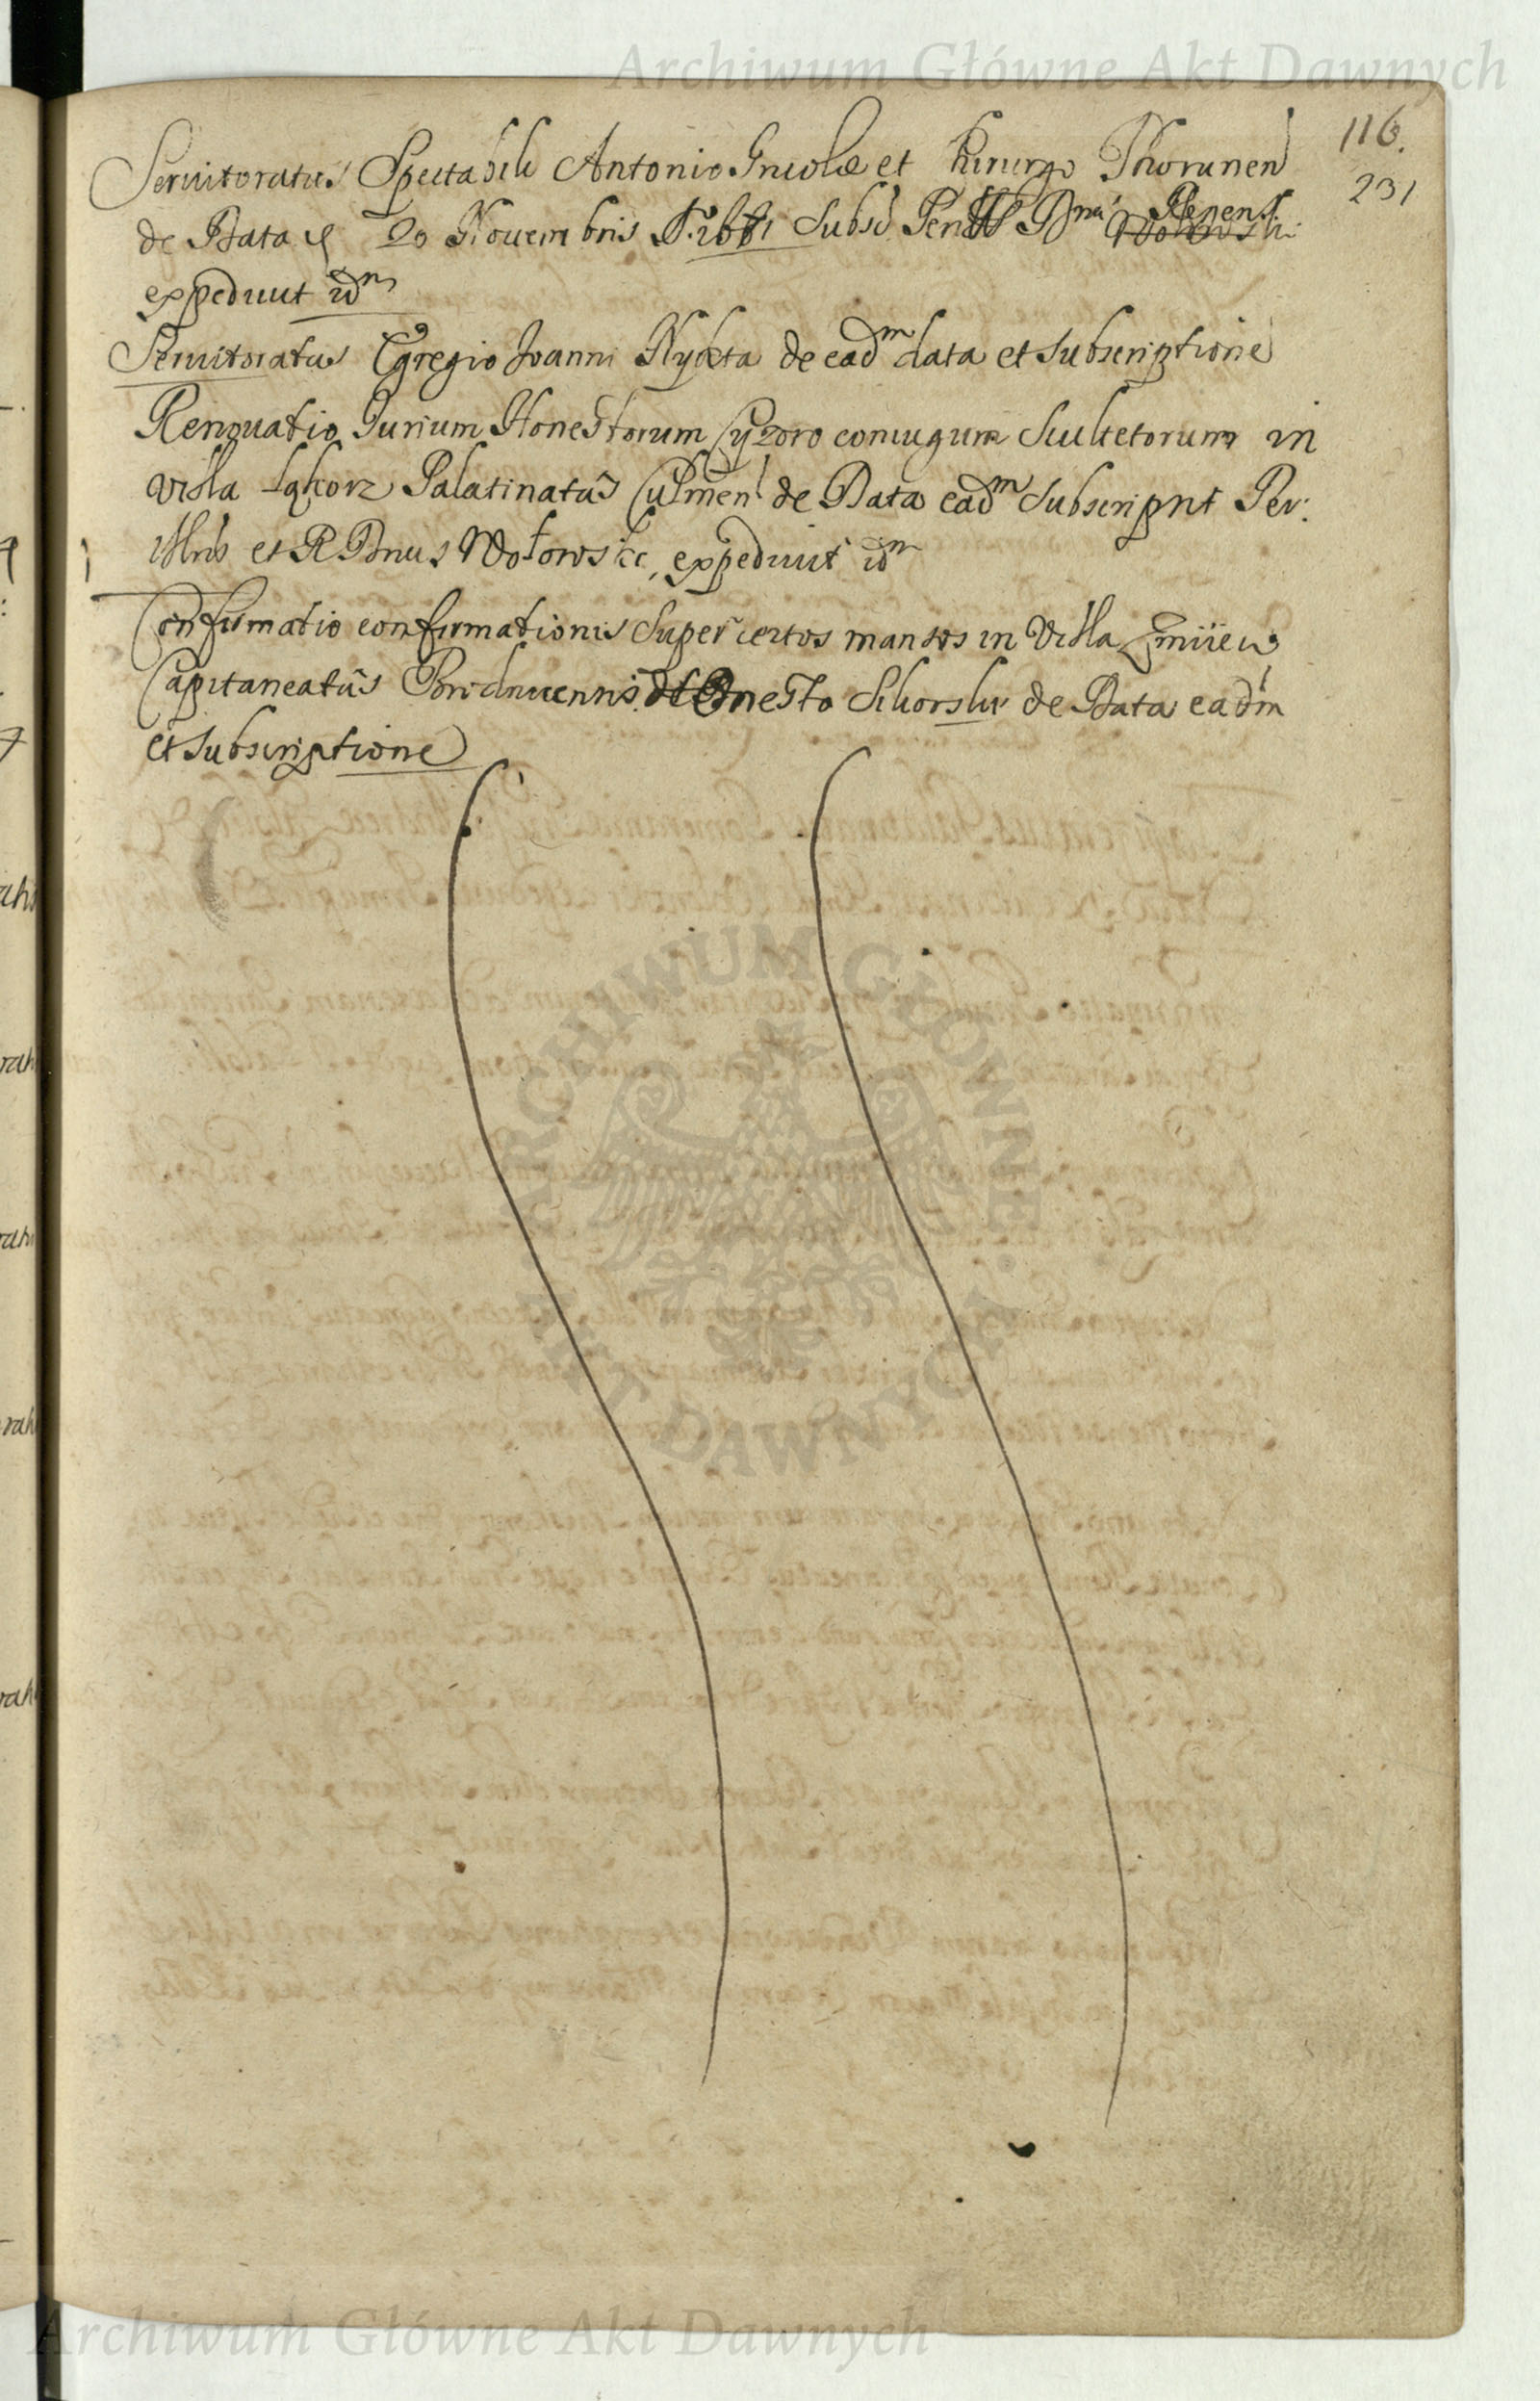 Archiwum Główne Akt Dawnych
116.
231
Seruitoratus Spectabili Antonio et Chirurgo Thorunen
de Data 20 Nouembris Subs
expediuit idm
Seruitoratus Egregio Joanni de eadm data et subscriptione
Renouatio Jurium Honestorum coniugum Scultetorum in
Villa Łąkorz Palatinatûs Culmen de Data eadm Subscripnt Per:
Illris et R Dnus Wołowski, expediuit idm
Confirmatio confirmationis super certos mansos in Villa Zmiiewo
Capitaneatûs Brodnicensis Honesto Sikorski de Data eadm
et subscriptione
ARCHIWUM GŁÓWNE AKT DAWNYCH
Archiwum Główne Akt Dawnych